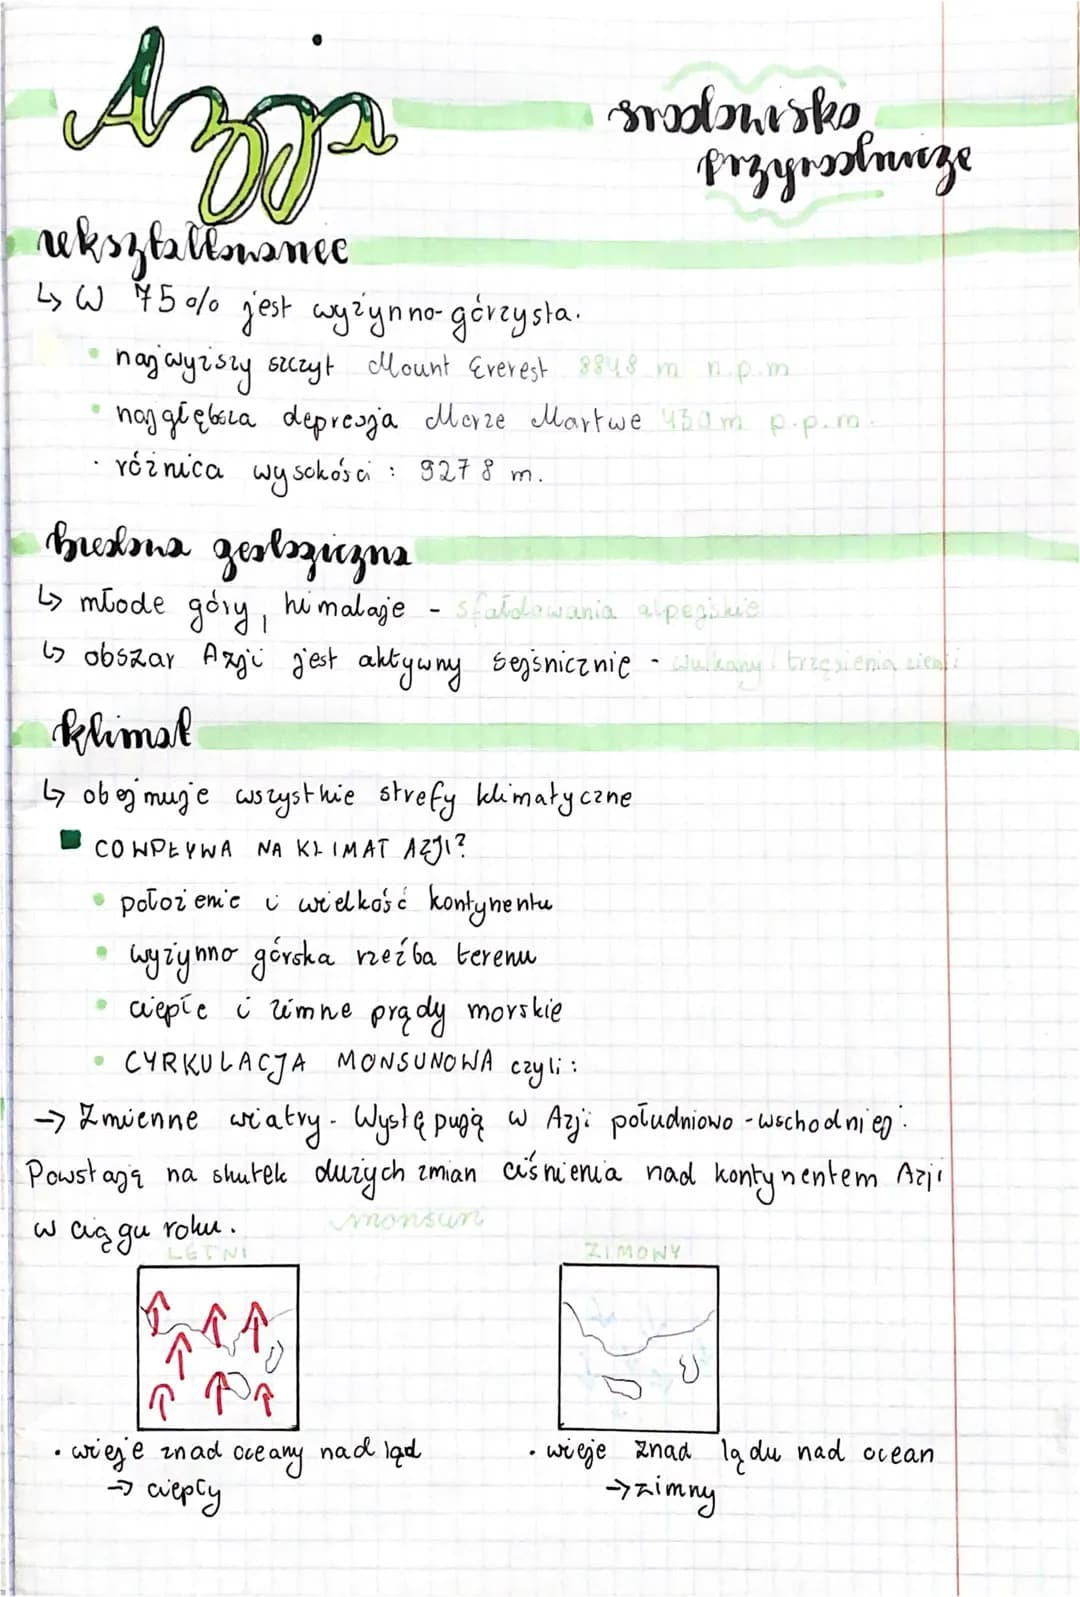 Azja
środowisko
przyrodnicze
ukształtowanee
↳ W 75% jest wyżynno-górzysta.
• najwyższy szczyt Mount Everest 8848 m n.p.m
• najgłębsza depresja Morze Martwe 430m p.p.m.
· różnica wysokości : 9278 m.
budowa geologiczna
↳ młode góry, himalaje - sfałdowania alpejskie
↳ obszar Azji jest aktywny sejsnicznie - wulkany i trzęsienia ziemi
klimat
↳ obejmuje wszystkie strefy klimatyczne
CO WPŁYWA NA KLIMAT AZJI?
• położenie i wielkość kontynentu
• wyżynno górska rzeźba terenu
• ciepłe i zimne prądy morskie
• CYRKULACJA MONSUNOWA czyli:
→ Zmienne wiatry. Występują w Azji południowo-wschodniej.
Powstają na skutek dużych zmian ciśnienia nad kontynentem Azji
w ciągu roku.
monsun
LETNI
ZIMOWY
• wieje znad oceany nad ląd
→ ciepły
• wieje znad lądu nad ocean
→ zimny